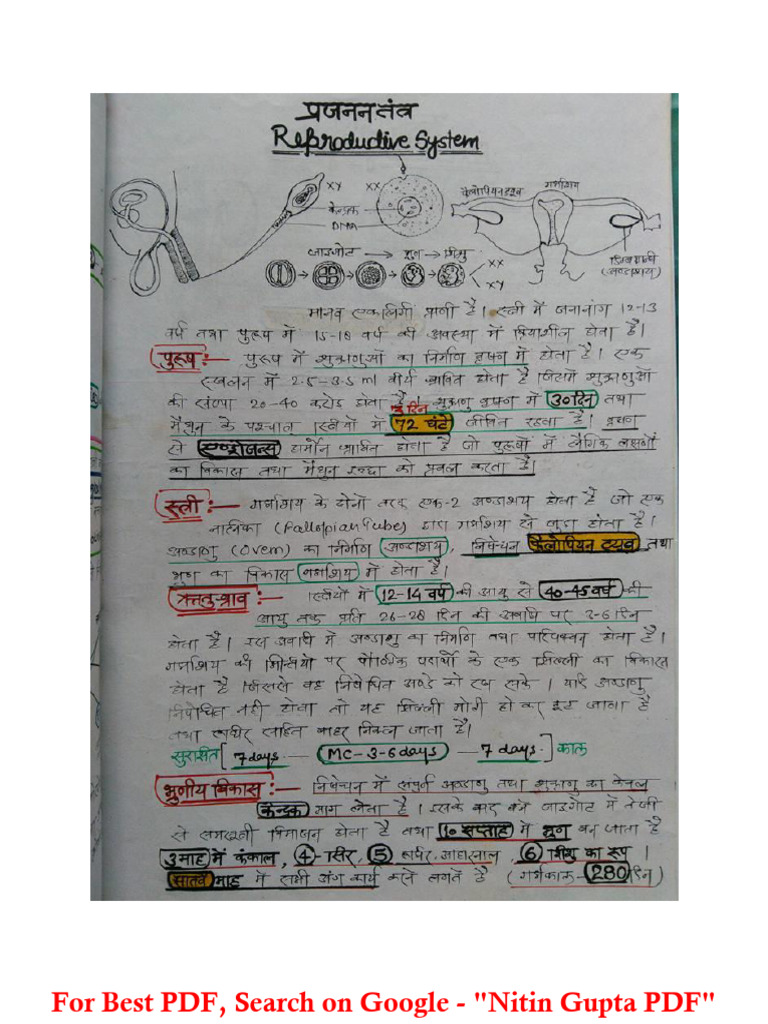 प्रजनन तंत्र
Reproductive System
XY XX
केन्द्रक
DNA
फैलोपियन ट्यूब गर्भाशय
जाइगोट → भ्रूण → शिशु
XX
XY
(अण्डाशय)
मानव एकलिंगी प्राणी है। स्त्री में जननांग 12-13
वर्ष तथा पुरूष में 15-18 वर्ष की अवस्था में क्रियाशील होता है।
पुरूष :- पुरूष में शुक्राणुओं का निर्माण वृषण में होता है। एक
स्खलन में 2.5-3.5 ml वीर्य स्रावित होता है जिसमें शुक्राणुओं
की संख्या 20-40 करोड़ होता है। शुक्राणु वृषण में 30 दिन तथा
3 दिन
मैथुन के पश्चात् स्त्रियों में 72 घंटे जीवित रहता है। वृषण
से एण्ड्रोजन्स हार्मोन स्रावित होता है जो पुरूषों में लैंगिक लक्षणों
का विकास तथा मैथुन इच्छा को प्रबल करता है।
स्त्री :- गर्भाशय के दोनों तरफ एक-2 अण्डाशय होता है जो एक
नालिका (Fallopian tube) द्वारा गर्भाशय से जुड़ा होता है।
अण्डाणु (Ovem) का निर्माण अण्डाशय, निषेचन फैलोपियन ट्यूब तथा
भ्रूण का विकास गर्भाशय में होता है।
ऋतु-स्राव :- स्त्रियों में 12-14 वर्ष की आयु से 40-45 वर्ष की
आयु तक प्रति 26-28 दिन की अवधि पर 3-6 दिन
होता है। इस अवधि में अण्डाणु का निर्माण तथा परिपक्वन होता है।
गर्भाशय की भित्तियों पर पौष्टिक पदार्थों के एक झिल्ली का विकास
होता है जिससे वह निषेचित अण्डे को रख सके। यदि अण्डाणु
निषेचित नहीं होता तो यह झिल्ली मोटी हो कर टूट जाता है
तथा रूधिर सहित बाहर निकल जाता है।
सुरक्षित [7 days - (MC-3-6 days) - 7 days] काल
भ्रुणीय विकास :- निषेचन में संपूर्ण अण्डाणु तथा शुक्राणु का केवल
केन्द्रक भाग लेता है। इसके बाद बने जाइगोट में तेजी
से समसूत्री विभाजन होता है तथा 10 सप्ताह में भ्रूण बन जाता है
3 माह में कंकाल, 4-सिर, 5 रूधिर, आहारनाल, 6 शिशु का रूप।
सातवें माह में सभी अंग कार्य करने लगते है (गर्भकाल-280 दिन)
For Best PDF, Search on Google - "Nitin Gupta PDF"